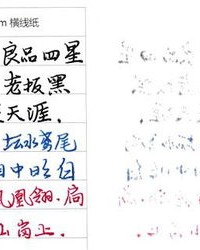 m 横线纸
良品四星
老板黑
天涯.
坛水鸢尾
中 白
凤凰翎.扃
山岗上.